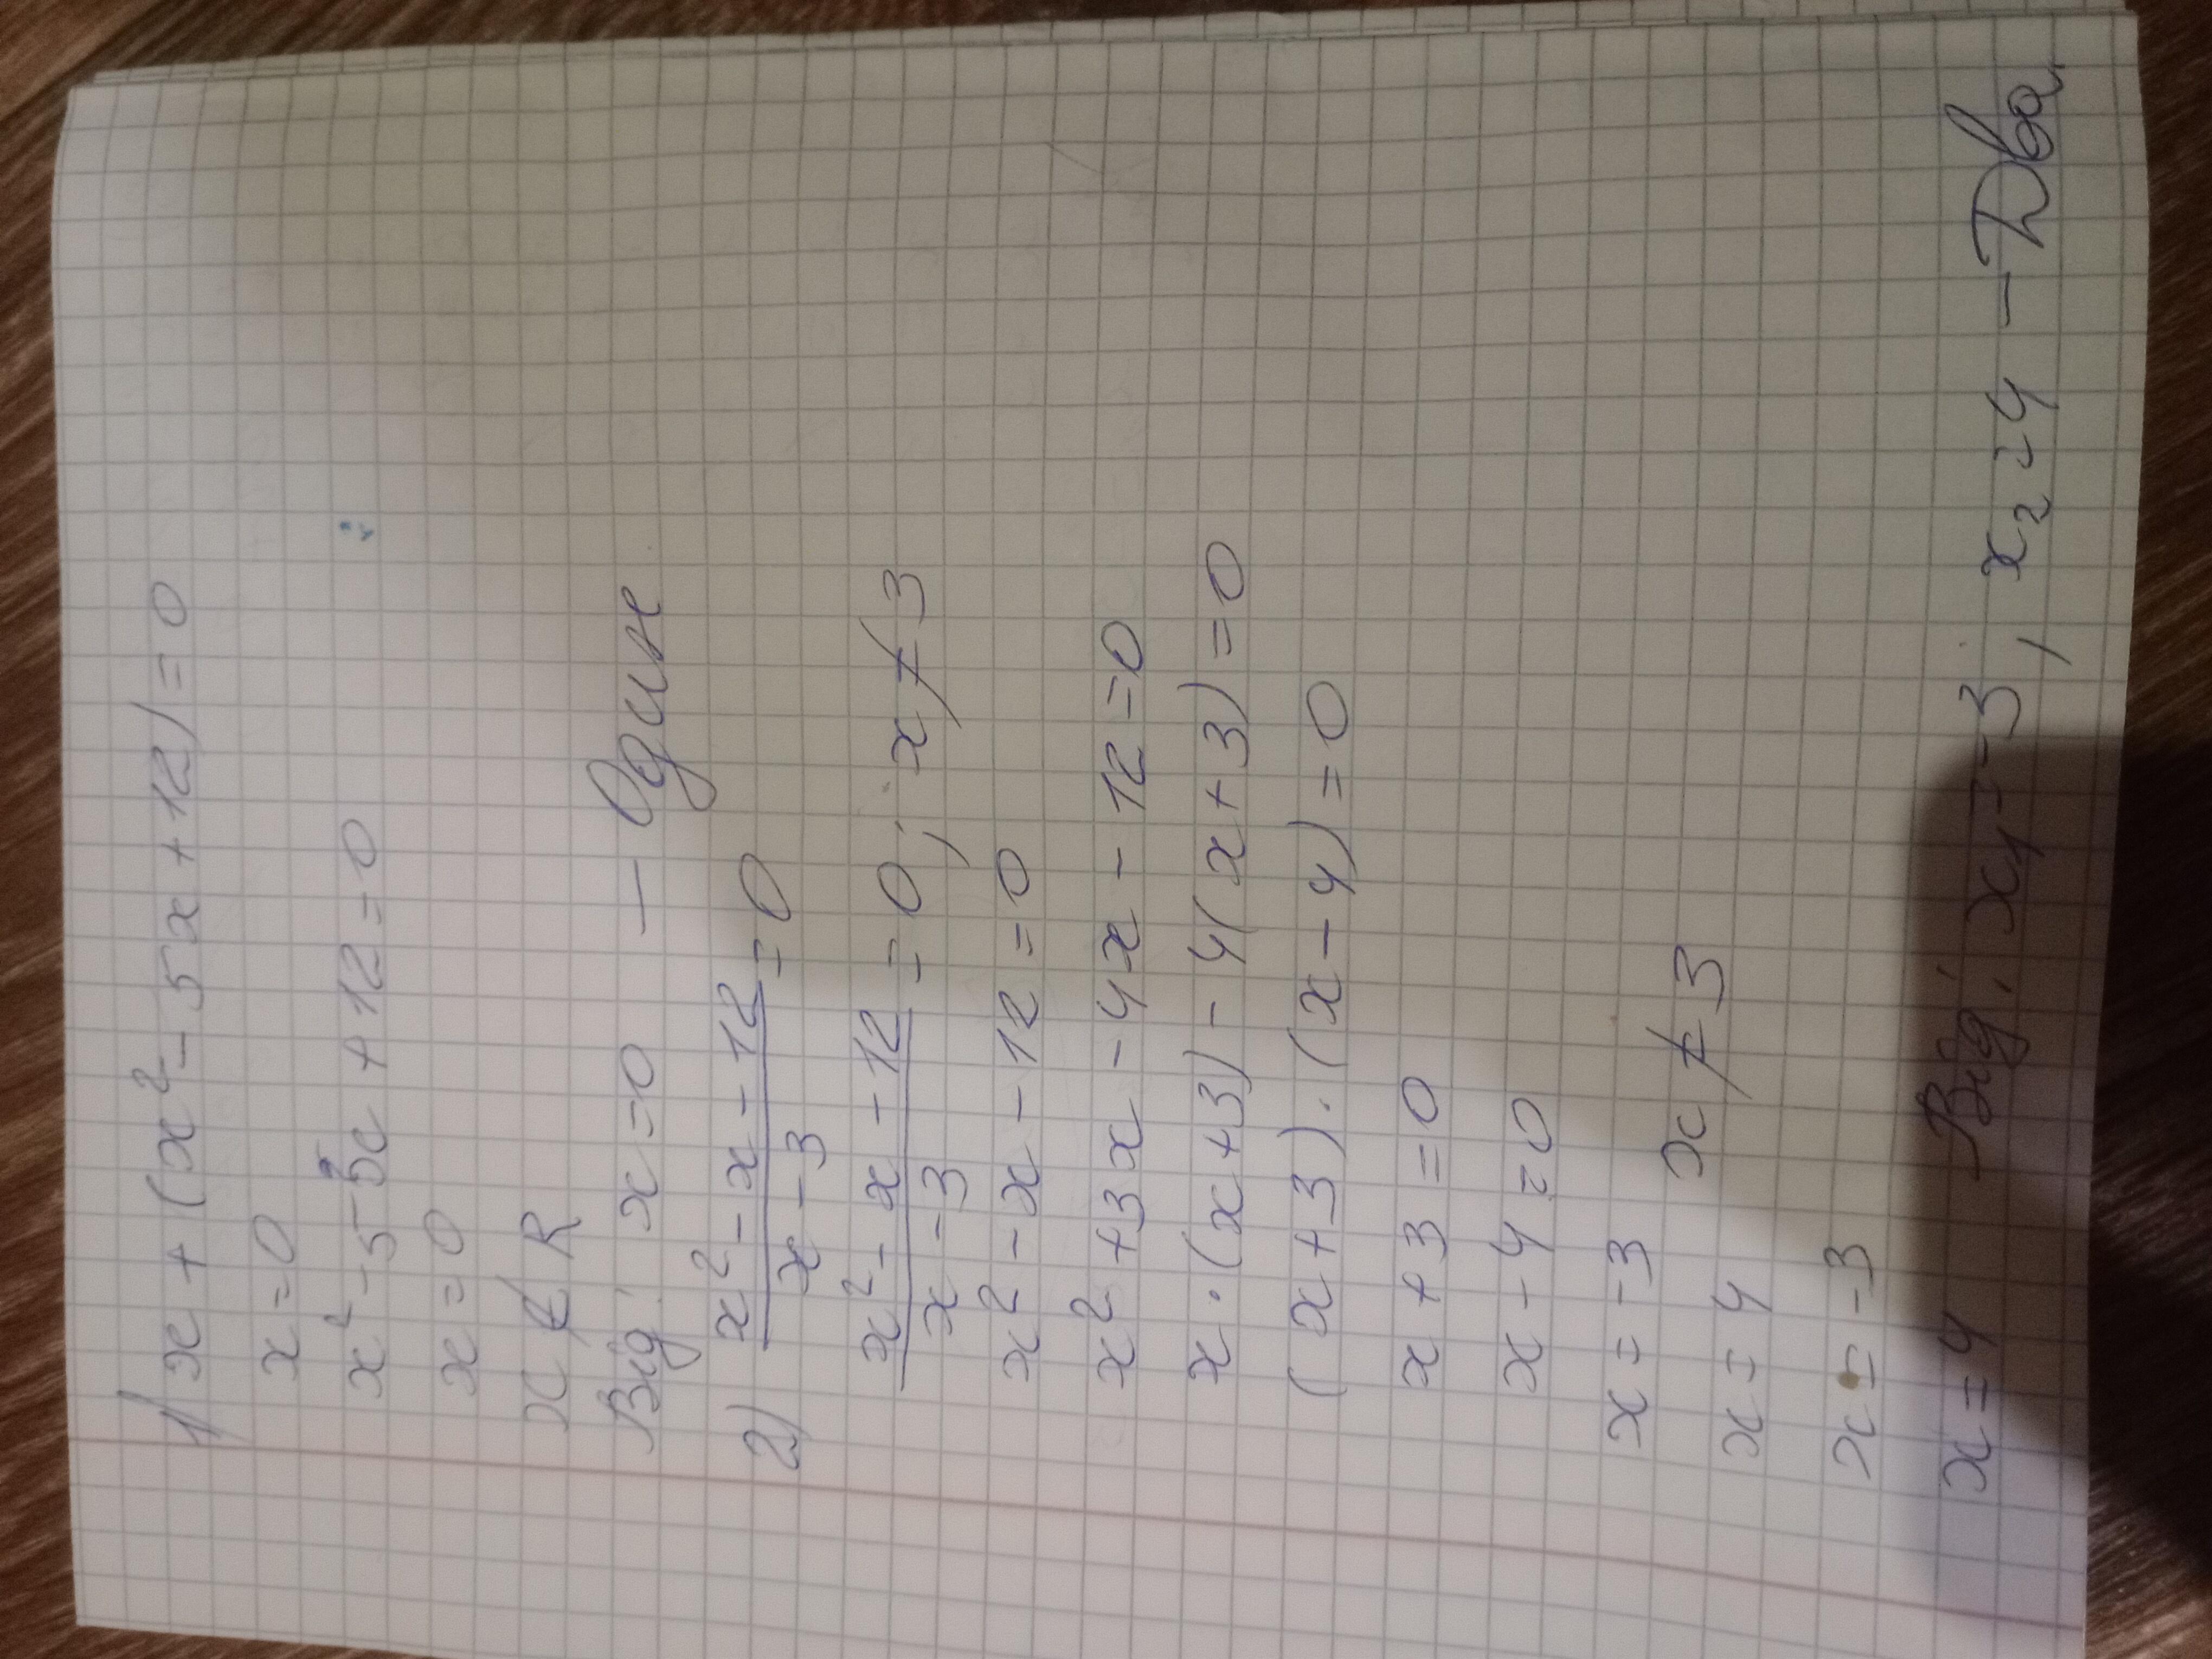 1) x + (x² - 5x + 12) = 0
x = 0
x² - 5x + 12 = 0
x = 0
x ∉ R
Від: x = 0 - Один
2) (x² - x - 12)/(x - 3) = 0
(x² - x - 12)/(x - 3) = 0; x ≠ 3
x² - x - 12 = 0
x² + 3x - 4x - 12 = 0
x · (x + 3) - 4(x + 3) = 0
(x + 3) · (x - 4) = 0
x + 3 = 0
x - 4 = 0
x = -3
x = 4 x ≠ 3
x = -3
x = 4 Від: x₁ = -3, x₂ = 4 - Два